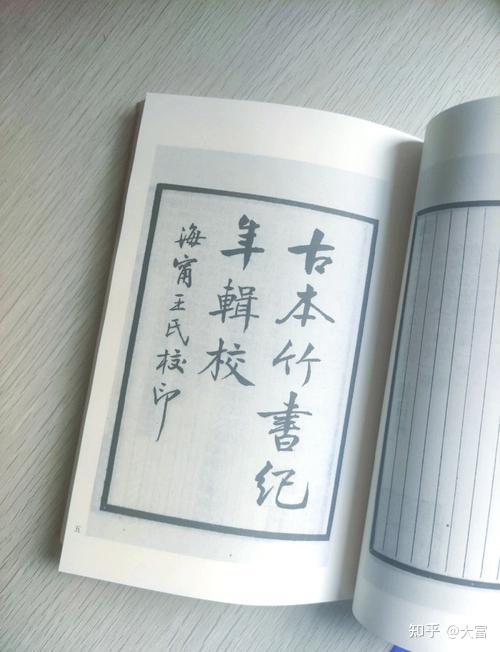 古本竹書纪
年輯校
海甯王氏校印
五
知乎 @大富